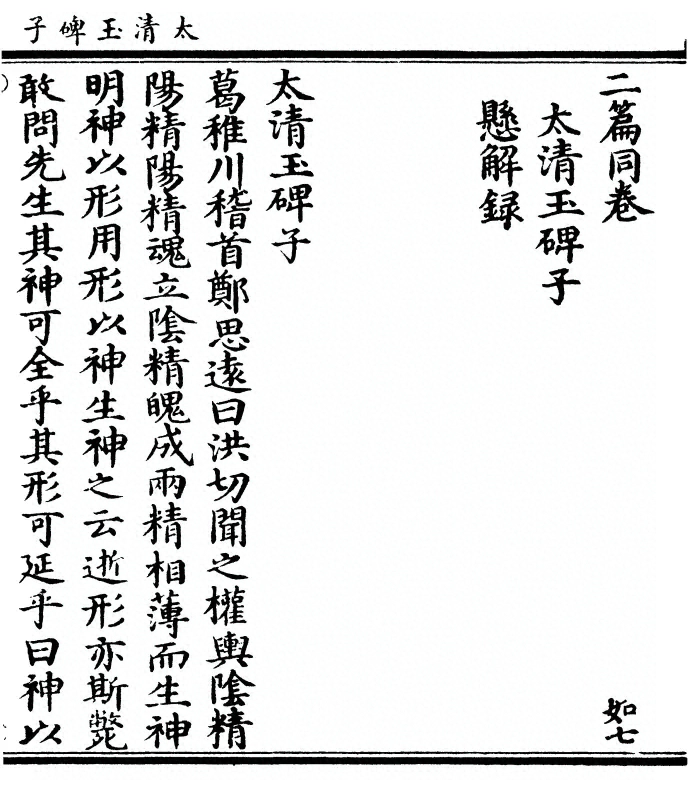 太清玉碑子
二篇同卷
太清玉碑子
懸解録
如七
太清玉碑子
葛稚川稽首鄭思遠曰洪切聞之權輿陰精
陽精陽精魂立陰精魄成兩精相薄而生神
明神以形用形以神生神之云逝形亦斯斃
敢問先生其神可全乎其形可延乎曰神以